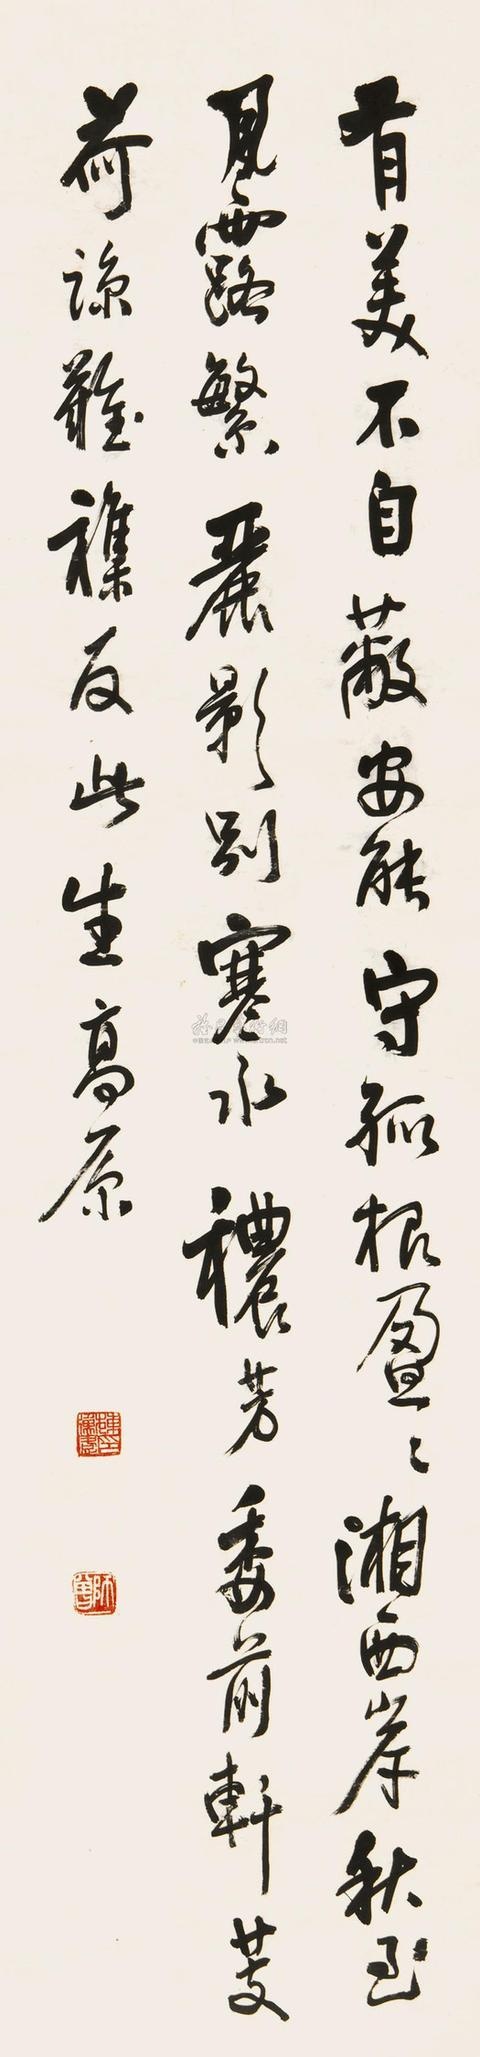 有美不自蔽安能守孤根盈〻湘西岸秋至
風露繁麗影別寒水穠芳委前軒芰
荷諒難襍反此生高原